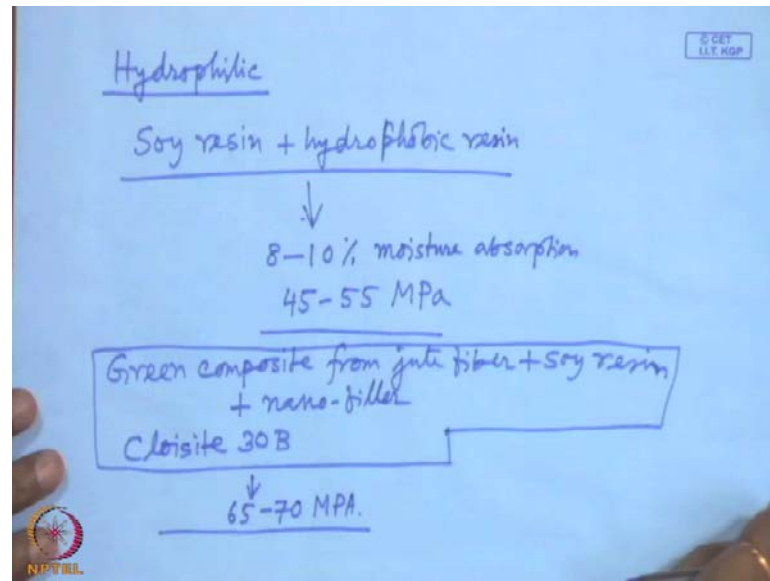 © CET
I.I.T. KGP
Hydrophilic
Soy resin + hydrophobic resin
8-10% moisture absorption
45-55 MPa
Green composite from jute fiber + soy resin
+ nano-filler
Cloisite 30B
65-70 MPA.
NPTEL